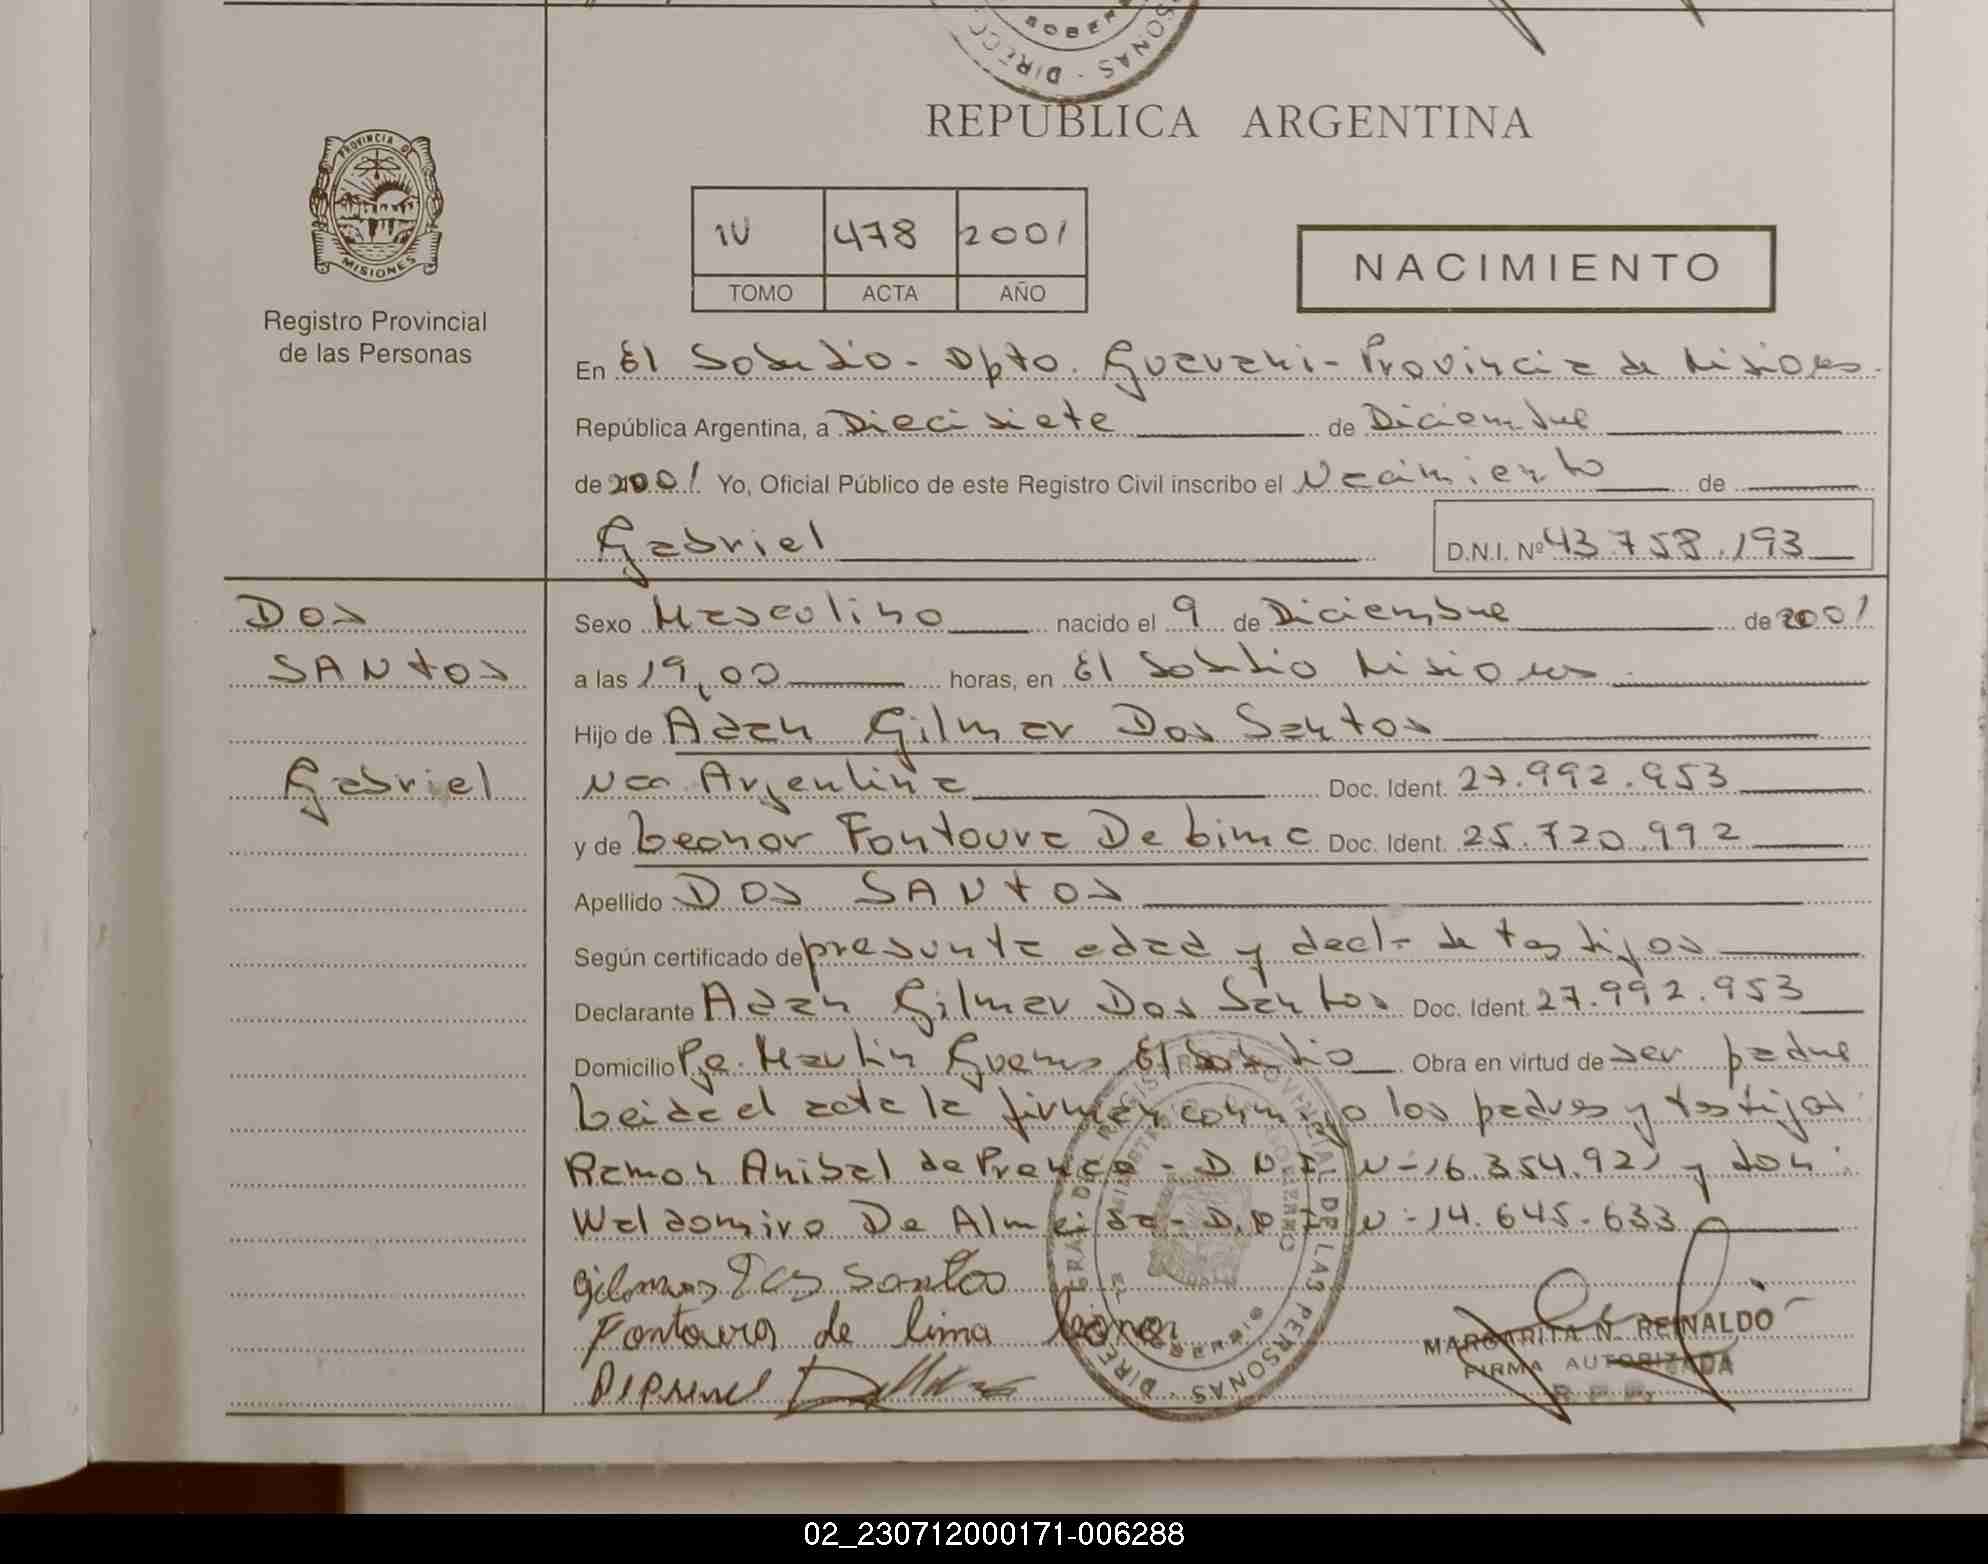 REPUBLICA ARGENTINA
PROVINCIA DE
MISIONES
Registro Provincial
de las Personas
IV 478 2001
TOMO ACTA AÑO
NACIMIENTO
En El Soberbio - Dpto. Guarani - Provincia de Misiones.
República Argentina, a Diecisiete de Diciembre
de 2001 Yo, Oficial Público de este Registro Civil inscribo el Nacimiento de
Gabriel D.N.I. Nº 43.758.193
DOS
SANTOS
Gabriel
Sexo Masculino nacido el 9 de Diciembre de 2001
a las 19,00 horas, en El Soberbio Misiones
Hijo de Adan Gilmar Dos Santos
Nac. Argentina Doc. Ident. 27.992.953
y de Leonor Fontoura De Lima Doc. Ident. 25.720.992
Apellido DOS SANTOS
Según certificado de presunta edad y decl- de testigos
Declarante Adan Gilmar Dos Santos Doc. Ident. 27.992.953
Domicilio Pje. Martin Guemes El Soberbio Obra en virtud de ser padre
Leida el acta la firman conmigo los padres y testigos
Ramon Anibal de - D.N.I. N-16.354.921 y don:
Waldomiro De Almeida - D.N.I. N-14.645.633
Gilmar Dos Santos
Fontoura de lima leonor
MARGARITA N. REINALDO
FIRMA AUTORIZADA
R.P.P.
02_230712000171-006288